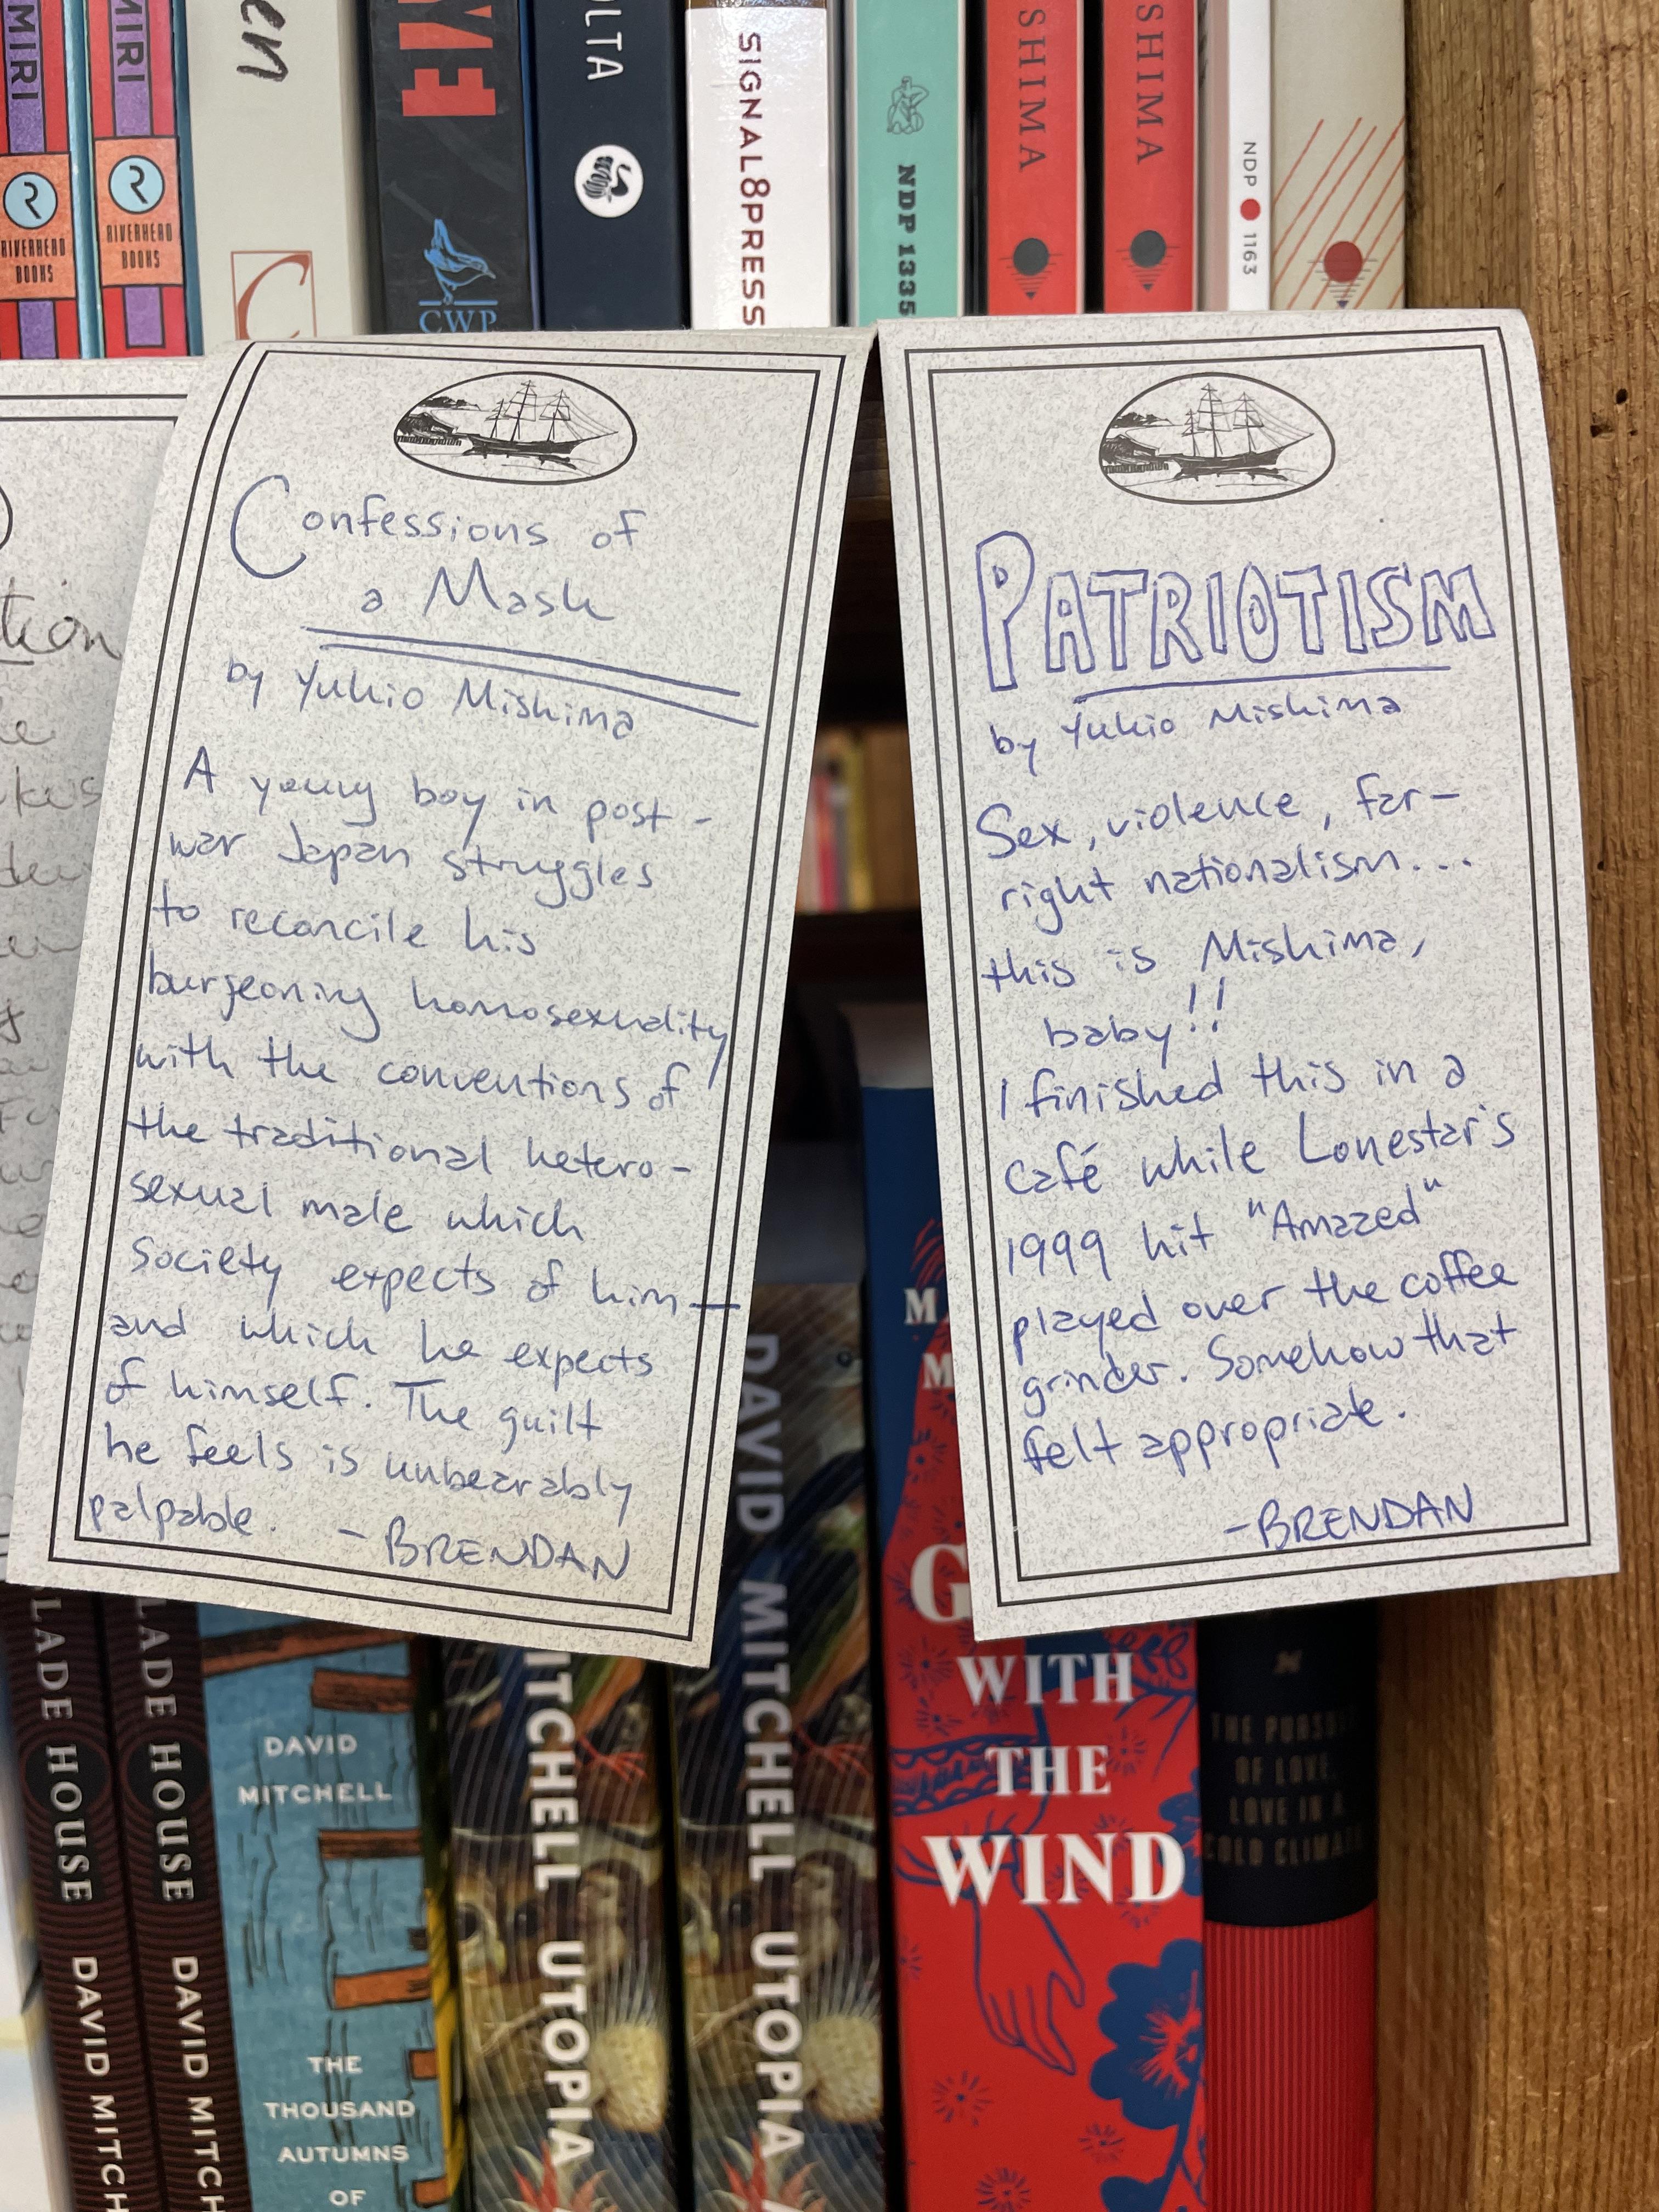 MIRI
RIVERHEAD
BOOKS
MIRI
RIVERHEAD
BOOKS
en
C
CWP
OLTA
SIGNAL8PRESS
NDP 1335
SHIMA
SHIMA
NDP 1163
tion
Confessions of
a Mask
by Yukio Mishima
A young boy in post-
war Japan struggles
to reconcile his
burgeoning homosexuality
with the conventions of
the traditional hetero-
sexual male which
society expects of him—
and which he expects
of himself. The guilt
he feels is unbearably
palpable. - BRENDAN
PATRIOTISM
by Yukio Mishima
Sex, violence, far-
right nationalism...
this is Mishima,
baby!!
I finished this in a
café while Lonestar's
1999 hit "Amazed"
played over the coffee
grinder. Somehow that
felt appropriate.
-BRENDAN
LADE HOUSE DAVID MITCH
LADE HOUSE DAVID MITCH
DAVID
MITCHELL
THE
THOUSAND
AUTUMNS
OF
ITCHELL UTOPIA
DAVID MITCHELL UTOPIA
M
M
G
WITH
THE
WIND
THE PURSU
OF LOVE,
LOVE IN A
COLD CLIMA